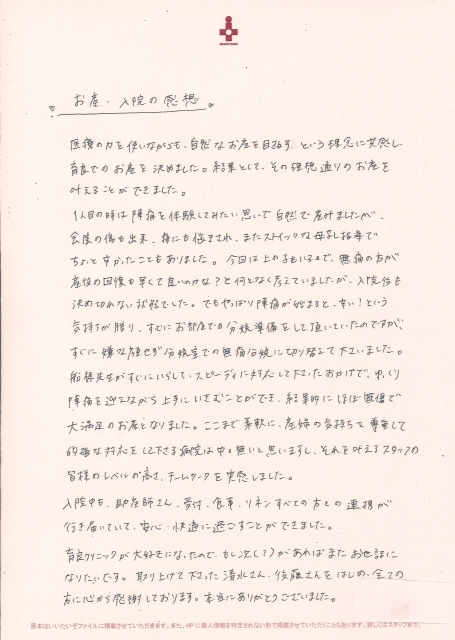 お産・入院の感想
医療の力を使いながらも、自然なお産を目指す、という理念に共感し、
育良でのお産を決めました。結果として、その理想通りのお産を
叶えることができました。
1人目の時は陣痛を体験してみたい思いで自然で産みましたが、
会陰の傷も出来、痔にも悩まされ、またストイックな母乳指導で
ちょっと辛かったこともありました。今回は上の子もいるので、無痛の方が
産後の回復も早くて良いのかな?と何となく考えていましたが、入院後も
決め切れない状態でした。でもやっぱり陣痛が始まると、辛い!という
気持ちが勝り、すでにお部屋での分娩準備をして頂いていたのですが、
すぐに嫌な顔せず分娩室での無痛分娩に切り替えて下さいました。
先生がすぐにいらして、スピーディに対応して下さったおかげで、ゆっくり
陣痛を迎えながら上手にいきむことができ、結果的にほぼ無傷で
大満足のお産となりました。ここまで柔軟に、産婦の気持ちを尊重して
的確な対応をして下さる病院は中々無いと思いますし、それを叶えるスタッフの
皆様のレベルの高さ、チームワークを実感しました。
入院中も、助産師さん、受付、食事、リネンすべての方との連携が
行き届いていて、安心・快適に過ごすことができました。
育良クリニックが大好きになったので、もし次(?)があればまたお世話に
なりたいです。取り上げて下さった清水さん、後藤さんをはじめ、全ての
方に心から感謝しております。本当にありがとうございました。
原本はいいたいぞファイルに掲載させていただきます。また、HPに個人情報を特定されない形で掲載させていただくこともあります。詳しくはスタッフまで。